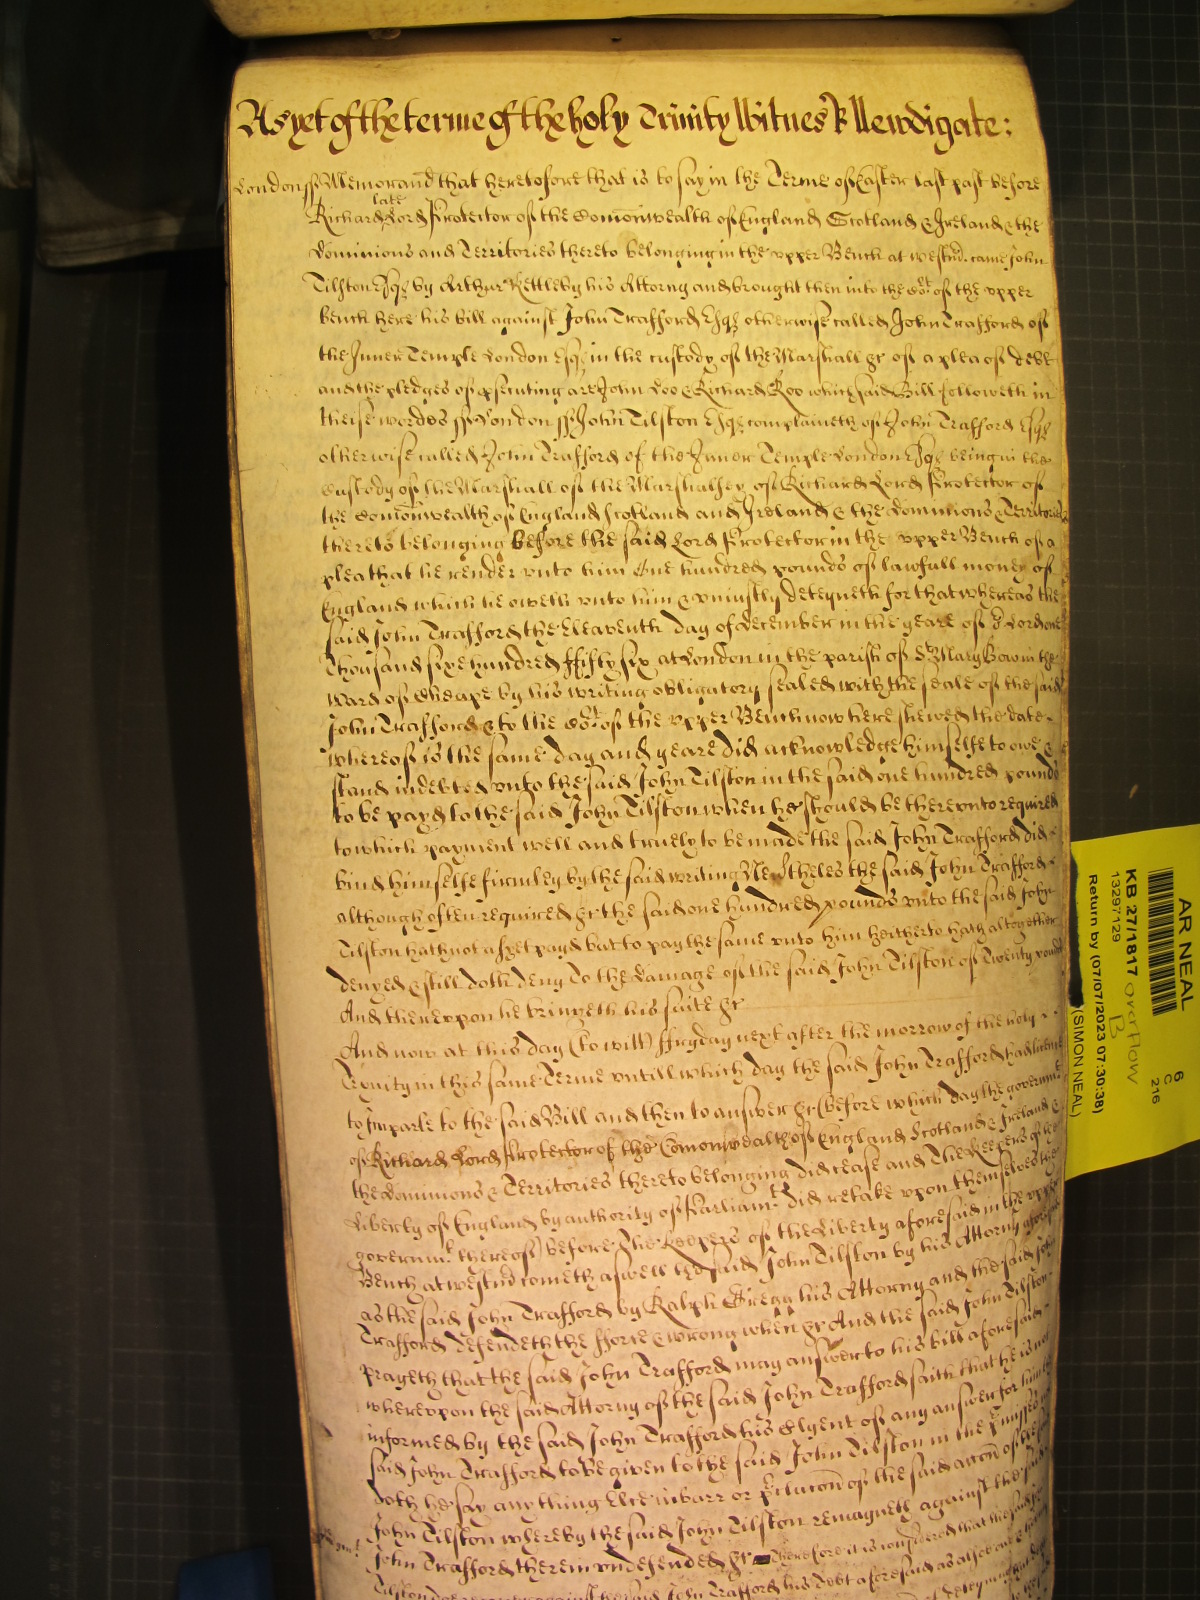 As yet of the terme of the holy Trinity Witnes R Newdigate:
London ss Memorand that heretofore that is to say in the Terme of Easter last past before
Richard late Lord Protector of the Comonwealth of England Scotland & Ireland & the
Dominions and Territories thereto belonging in the upper Bench at Westmr. came John
Tilston Esqr by Arthur Kettleby his Attorny and brought then into the Cort of the upper
bench here his bill against John Trafford Esqr otherwise called John Trafford of
the Inner Temple London Esqr in the custody of the Marshall &c of a plea of debt
and the pledges of psecuting are John Doo & Richard Roo which said Bill followeth in
theise wordes ss London ss John Tilston Esqr complaineth of John Trafford Esqr
otherwise called John Trafford of the Inner Temple London Esqr being in the
Custody of the Marshall of the Marshalsey of Richard Lord Protector of
the Comonwealth of England Scotland and Ireland & the Dominions & Territories
thereto belonging before the said Lord Protector in the upper Bench of a
plea that he render unto him One hundred pounds of lawfull money of
England which he oweth unto him & uniustly deteyneth for that whereas the
said John Trafford the Eleaventh day of December in the yeare of or Lord one
Thousand sixe hundred fifty six at London in the parish of St Mary Bow in the
Ward of Cheape by his writing obligatory sealed with the seale of the said
John Trafford & to the Cort of the upper Bench now here shewed the date
whereof is the same day and yeare did acknowledge himselfe to owe &
stand indebted unto the said John Tilston in the said one hundred pounds
to be payd to the said John Tilston when he should be thereunto required
to which payment well and truely to be made the said John Trafford did
bind himselfe firmley by the said writing Nevrtheles the said John Trafford
although often required &c the said one hundred pounds unto the said John
Tilston hath not as yet payd but to pay the same unto him heitherto hath altogether
denyed & still doth deny To the damage of the said John Tilston of Twenty pounds
And thereupon he bringeth his suite &c
And now at this day (to witt) ffryday next after the morrow of the holy
Trinity in this same Terme untill which day the said John Trafford had licence
to Imparle to the said Bill and then to answer &c (before which day the governmt
of Richard Lord Protector of the Comonwealth of England Scotland & Ireland &
the Dominions & Territories thereto belonging did cease and The Keepers of the
Liberty of England by authority of Parliamt. did retake upon themselves the
governmt. thereof) before The Keepers of the Liberty aforesaid in the upper
Bench at Westmr cometh aswell the said John Tilston by his Attorny aforesaid
as the said John Trafford by Ralph Gregg his Attorny and the said John
Trafford defendeth the fforce & wrong when &c And the said John Tilston
prayeth that the said John Trafford may answer to his bill aforesaid
whereupon the said Attorny of the said John Trafford saith that he is not
informed by the said John Trafford his Clyent of any answer for him the
said John Trafford to be given to the said John Tilston in the pmisses nor
doth he say any thing Else in barr or pclucon of the said accon of the said
John Tilston whereby the said John Tilston remayneth against the said
John Trafford therein undefended &c Therefore it is considered that the said John
Tilston doe recover against the said John Trafford his Debt aforesaid as alsoe
AR NEAL
6
C
216
KB 27/1817 overflow
B
13297129
Return by (07/07/2023 07:30:38)
(SIMON NEAL)